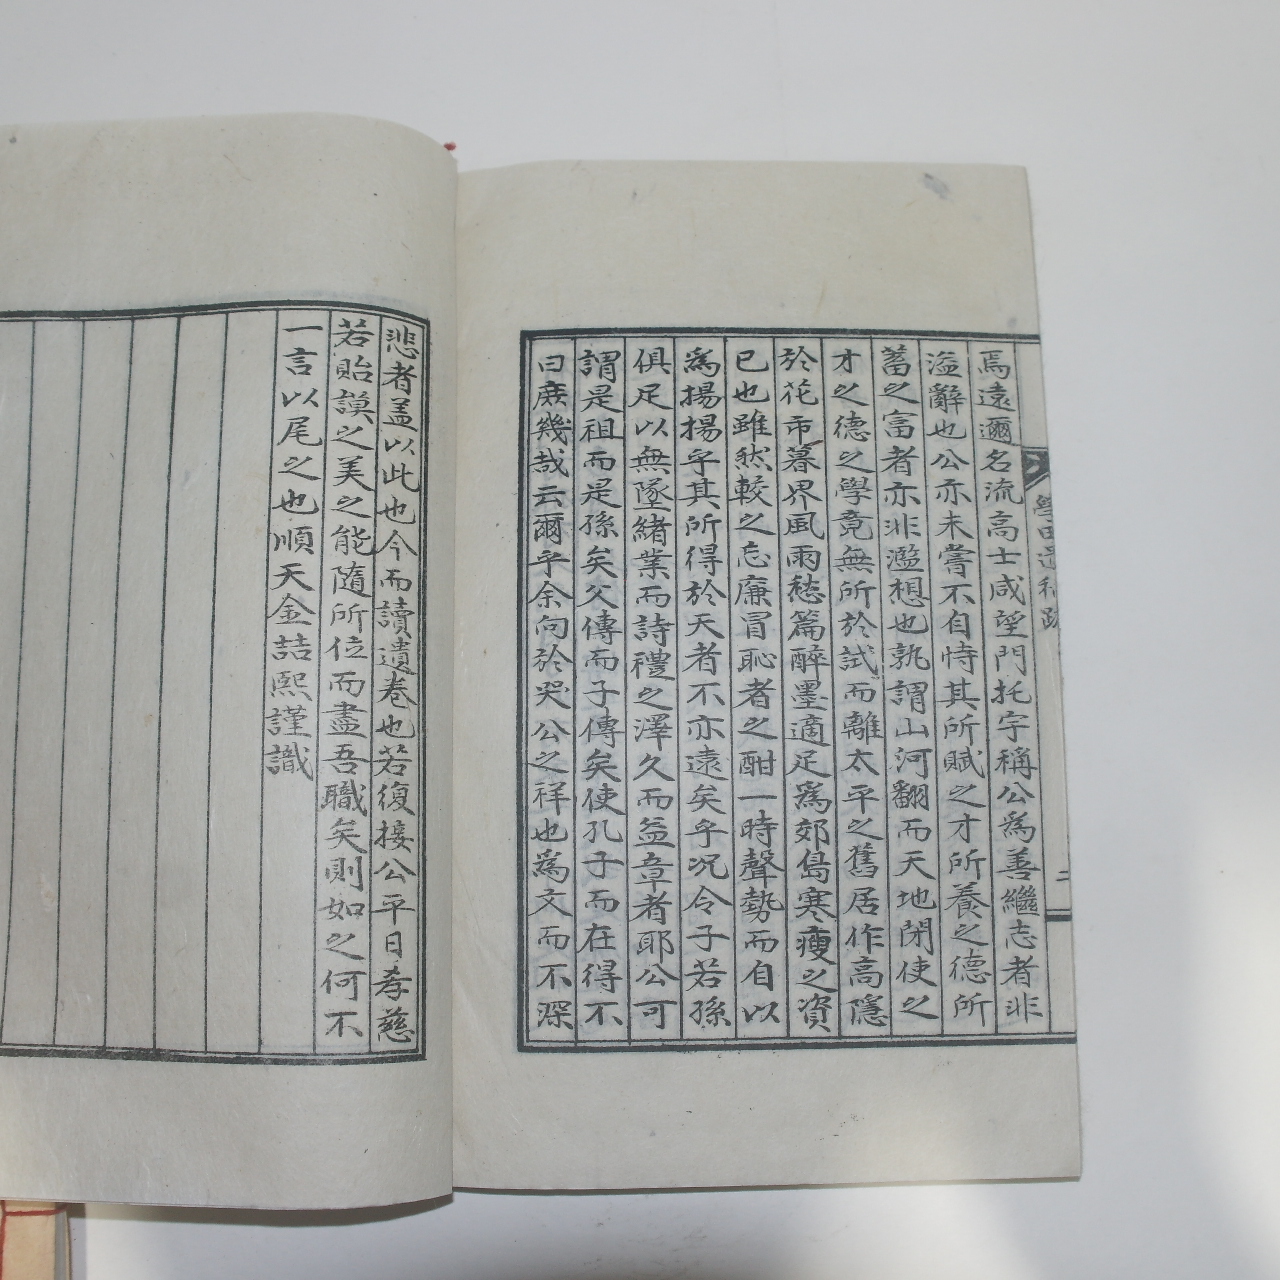 焉遠邇名流高士咸望門托宇稱公爲善繼志者非
溢辭也公亦未嘗不自恃其所賦之才所養之德所
蓄之富者亦非濫想也孰謂山河翻而天地閉使之
才之德之學竟無所於試而離太平之舊居作高隱
於花市暮界風雨愁篇醉墨適足爲郊島寒瘦之資
已也雖然較之忘廉冒恥者之酣一時聲勢而自以
爲揚揚乎其所得於天者不亦遠矣乎况令子若孫
俱足以無墜緖業而詩禮之澤久而益章者耶公可
謂是祖而是孫矣父傳而子傳矣使孔子而在得不
曰庶幾哉云爾乎余向於哭公之祥也爲文而不深
悲者盖以此也今而讀遺卷也若復接公平日孝慈
若貽謨之美之能隨所位而盡吾職矣則如之何不
一言以尾之也順天金喆熙謹識
學田遺稿跋
二